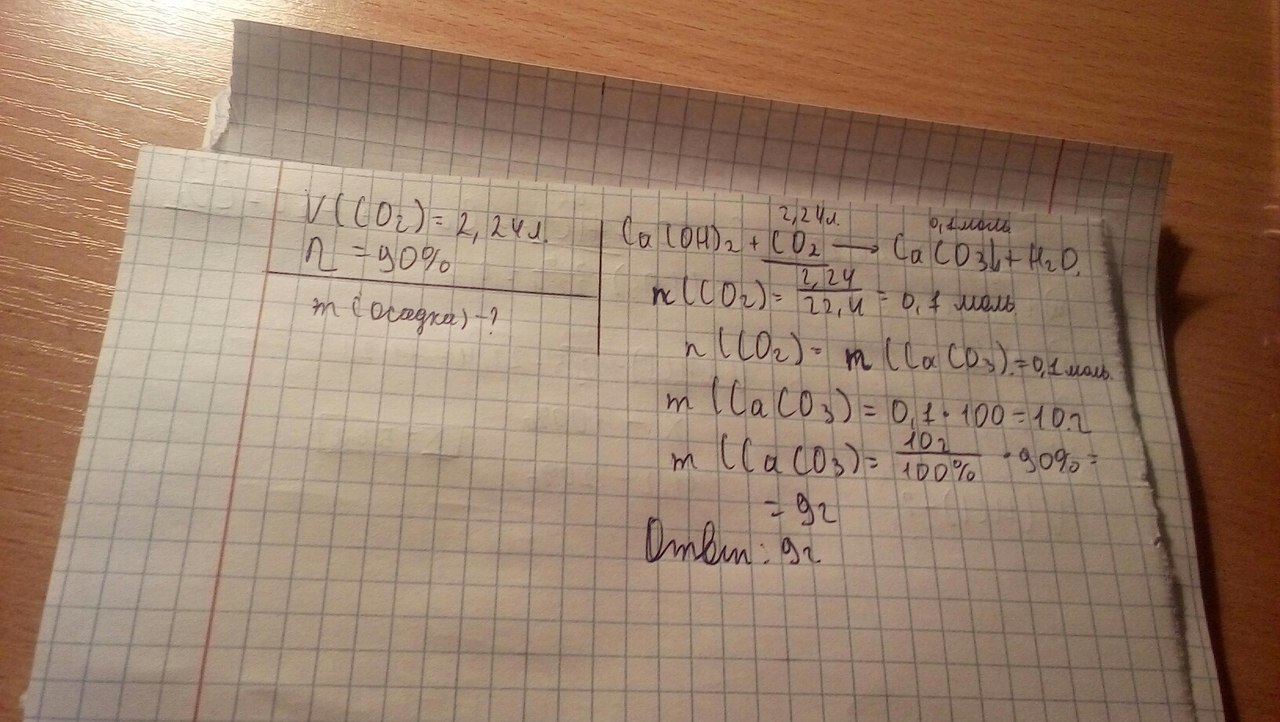 V(CO₂) = 2,24л.
η = 90%
m (осадка) -?
2,24л. 0,1моль
Ca(OH)₂ + CO₂ → CaCO₃↓ + H₂O.
n(CO₂) = 2,24/22,4 = 0,1 моль
n(CO₂) = m(CaCO₃) = 0,1моль.
m(CaCO₃) = 0,1 · 100 = 10г
m(CaCO₃) = 10г/100% · 90% =
= 9г
Ответ: 9г